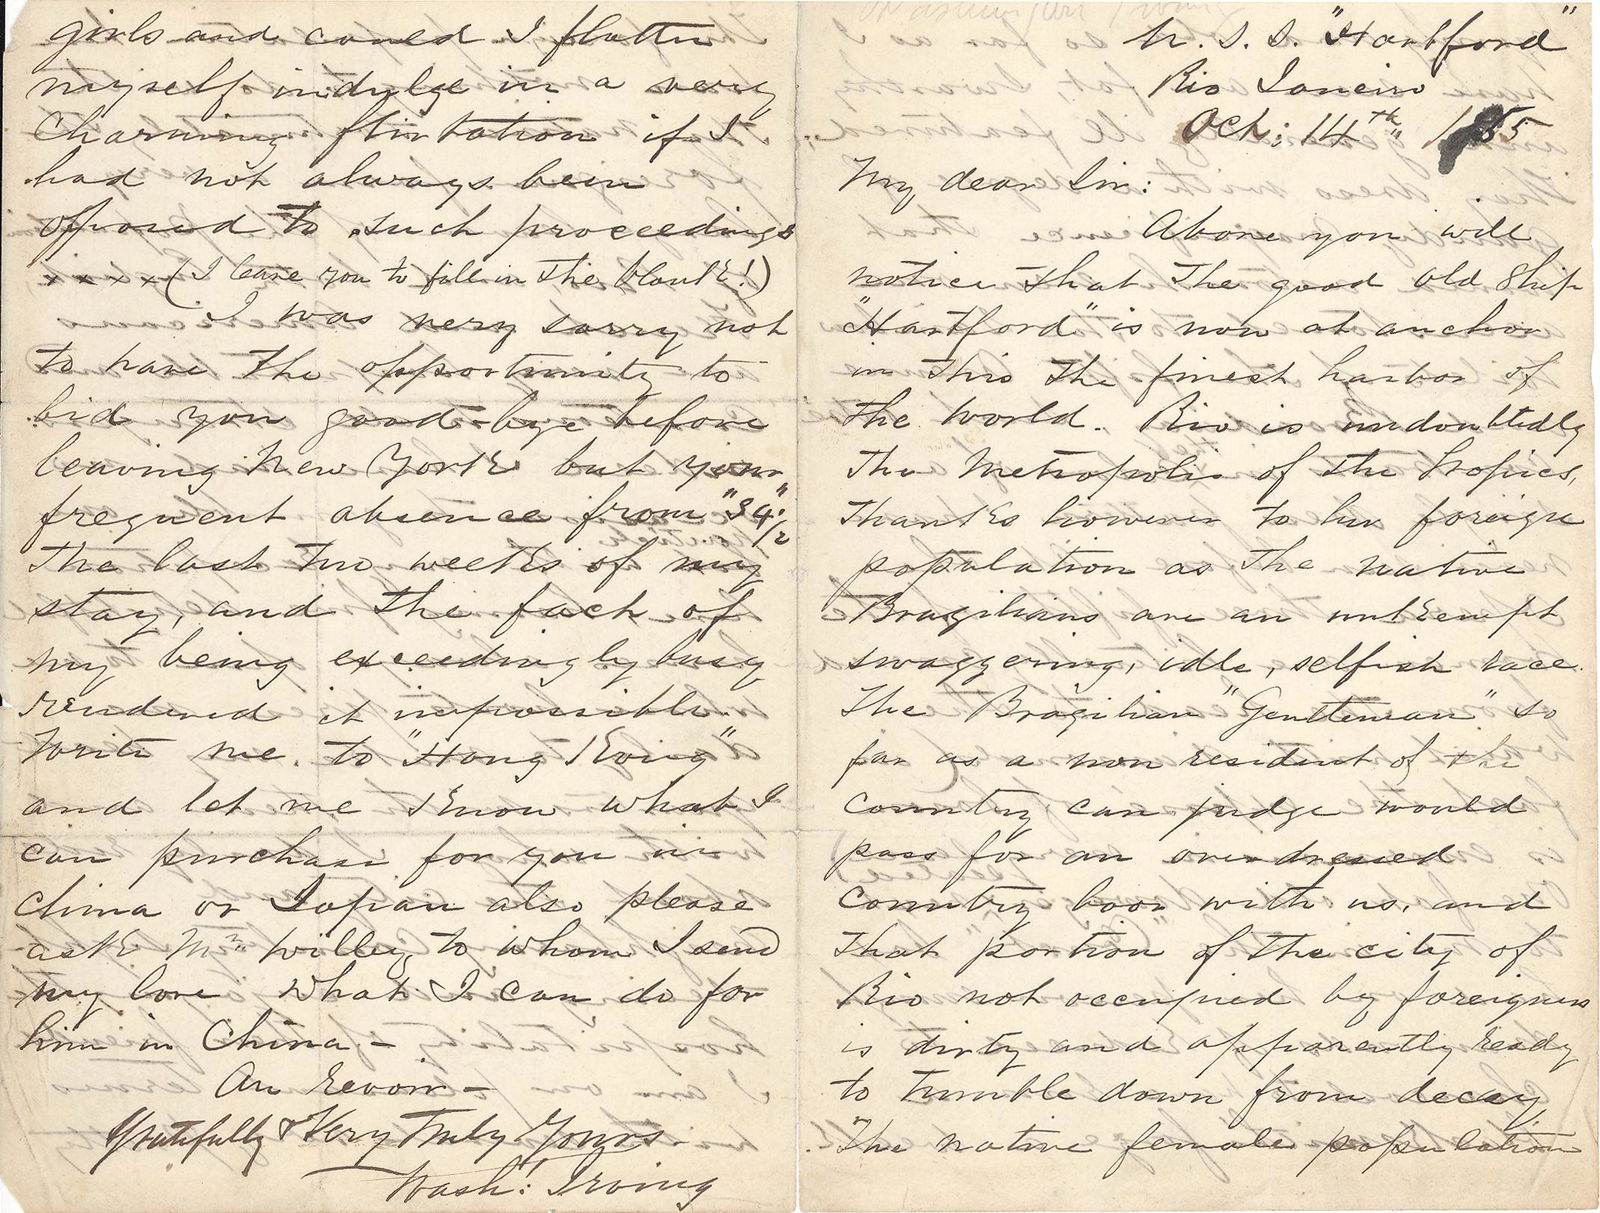 U. S. S. "Hartford"
Rio Janeiro
Oct: 14th 1865
My dear Sir:
Above you will
notice that the good old ship
"Hartford" is now at anchor
in this the finest harbor of
the world. Rio is undoubtedly
the Metropolis of the Tropics,
thanks however to her foreign
population as the native
Brazilians are an unkempt
swaggering, idle, selfish race.
The Brazilian "Gentleman" so
far as a non resident of the
country can judge would
pass for an over dressed
country boor with us, and
that portion of the city of
Rio not occupied by foreigners
is dirty and apparently ready
to tumble down from decay
The native female population
girls and could I flatter
myself indulge in a very
charming flirtation if I
had not always been
opposed to such proceedings
x x x x (I leave you to fill in the blank!)
I was very sorry not
to have the opportunity to
bid you good-bye before
leaving New York but your
frequent absence from "34 1/2"
the last two weeks of my
stay, and the fact of
my being exceedingly busy
rendered it impossible.
Write me to "Hong Kong"
and let me know what I
can purchase for you in
China or Japan also please
ask Mr. Willey to whom I send
my love what I can do for
him in China -
Au revoir -
Gratefully & Very Truly Yours
Wash: Irving